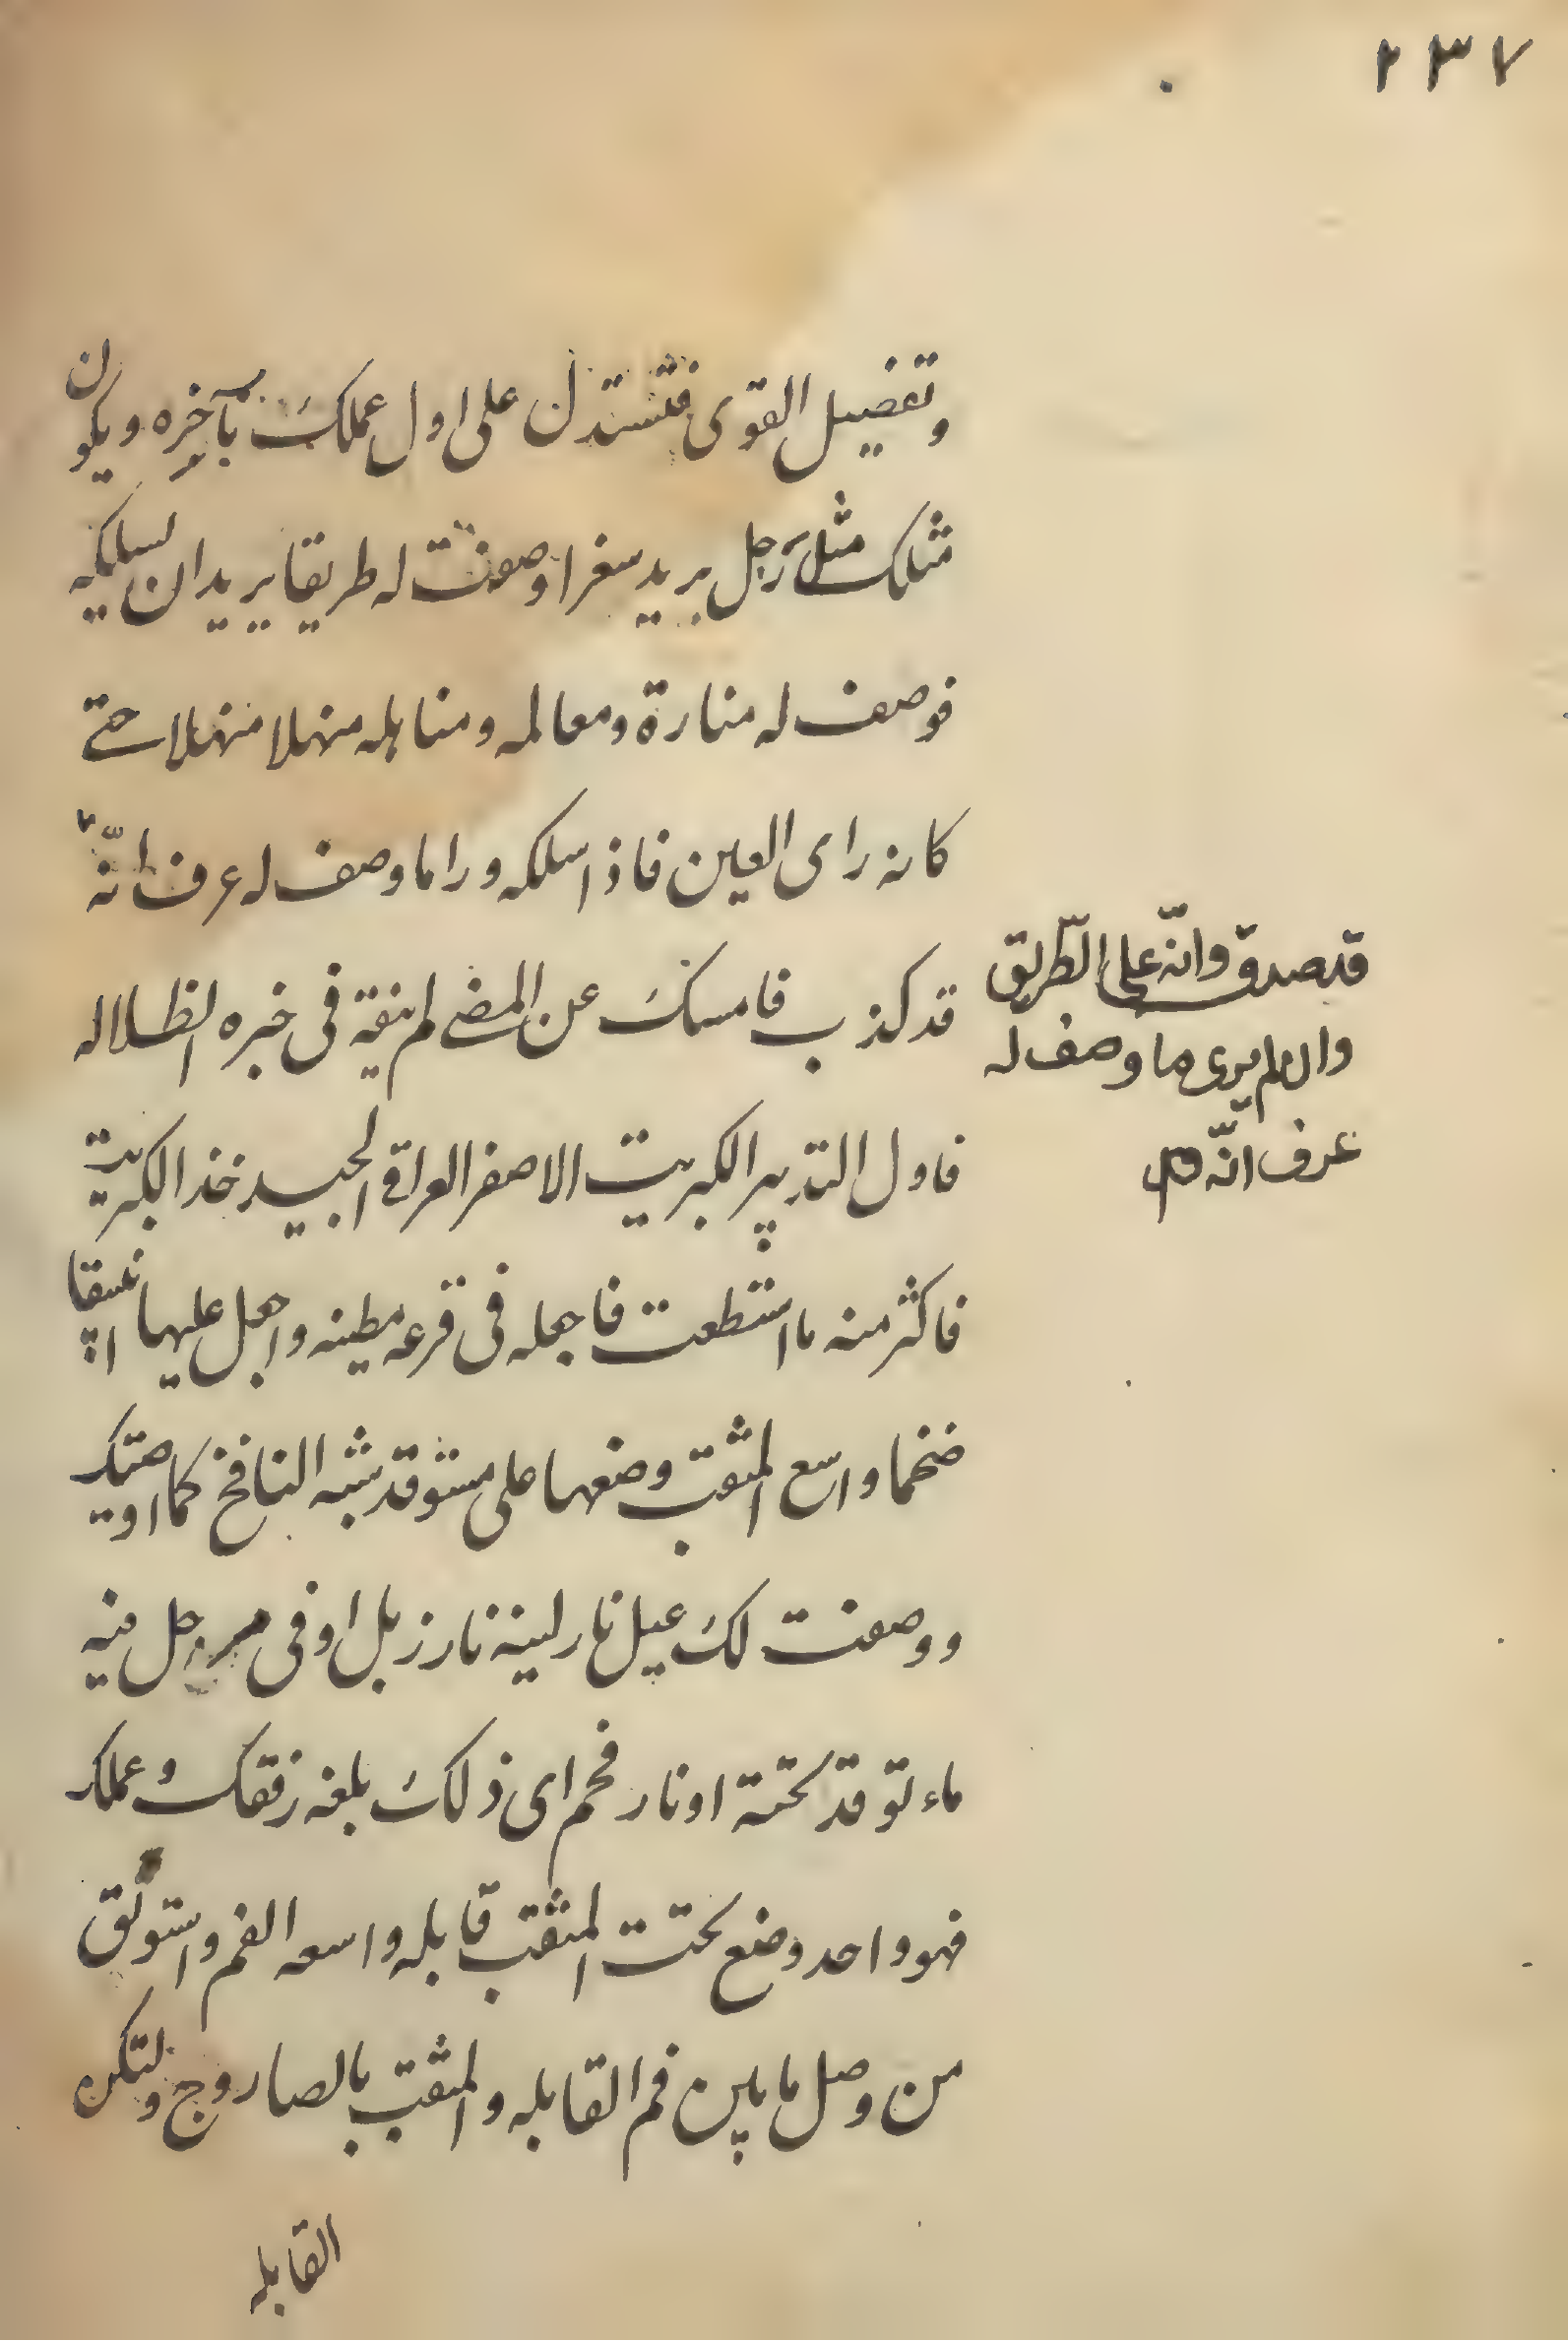 ٢٣٧
وتفضيل القوى فتستدل على اول عملك بآخره ويكون
مثلك مثل رجل يريد سفرا وصفت له طريقا يريد ان يسلكه
فوصف له منارة ومعالمه ومناهله منهلا منهلا حتى
كانه راى العين فاذا سلكه ورا ما وصف له عرف انّه
قد صدق وانّه على الطّريق
وان لم يرى ما وصف له
عرف انّه
قد كذب فامسك عن المضى لم يقه فى خبره الظلاله
فاول التدبير الكبريت الاصفر العراقى الجيد خذ الكبريت
فاكثر منه ما استطعت فاجعله فى قرعه مطينه واجعل عليها انبيقا
ضخما واسع المثقب وضعها على مستوقد شبه النافخ كما اوصيتك
ووصفت لك عيل نار لينه نار زبل او فى مرجل فيه
ماء توقد تحته او نار فحم اى ذلك بلغه رفقك وعملك
فهو واحد وضع تحت المثقب قابله واسعه الفم واستوثق
من وصل ما بين فم القابله والمثقب بالصاروج ولتكن
القابله